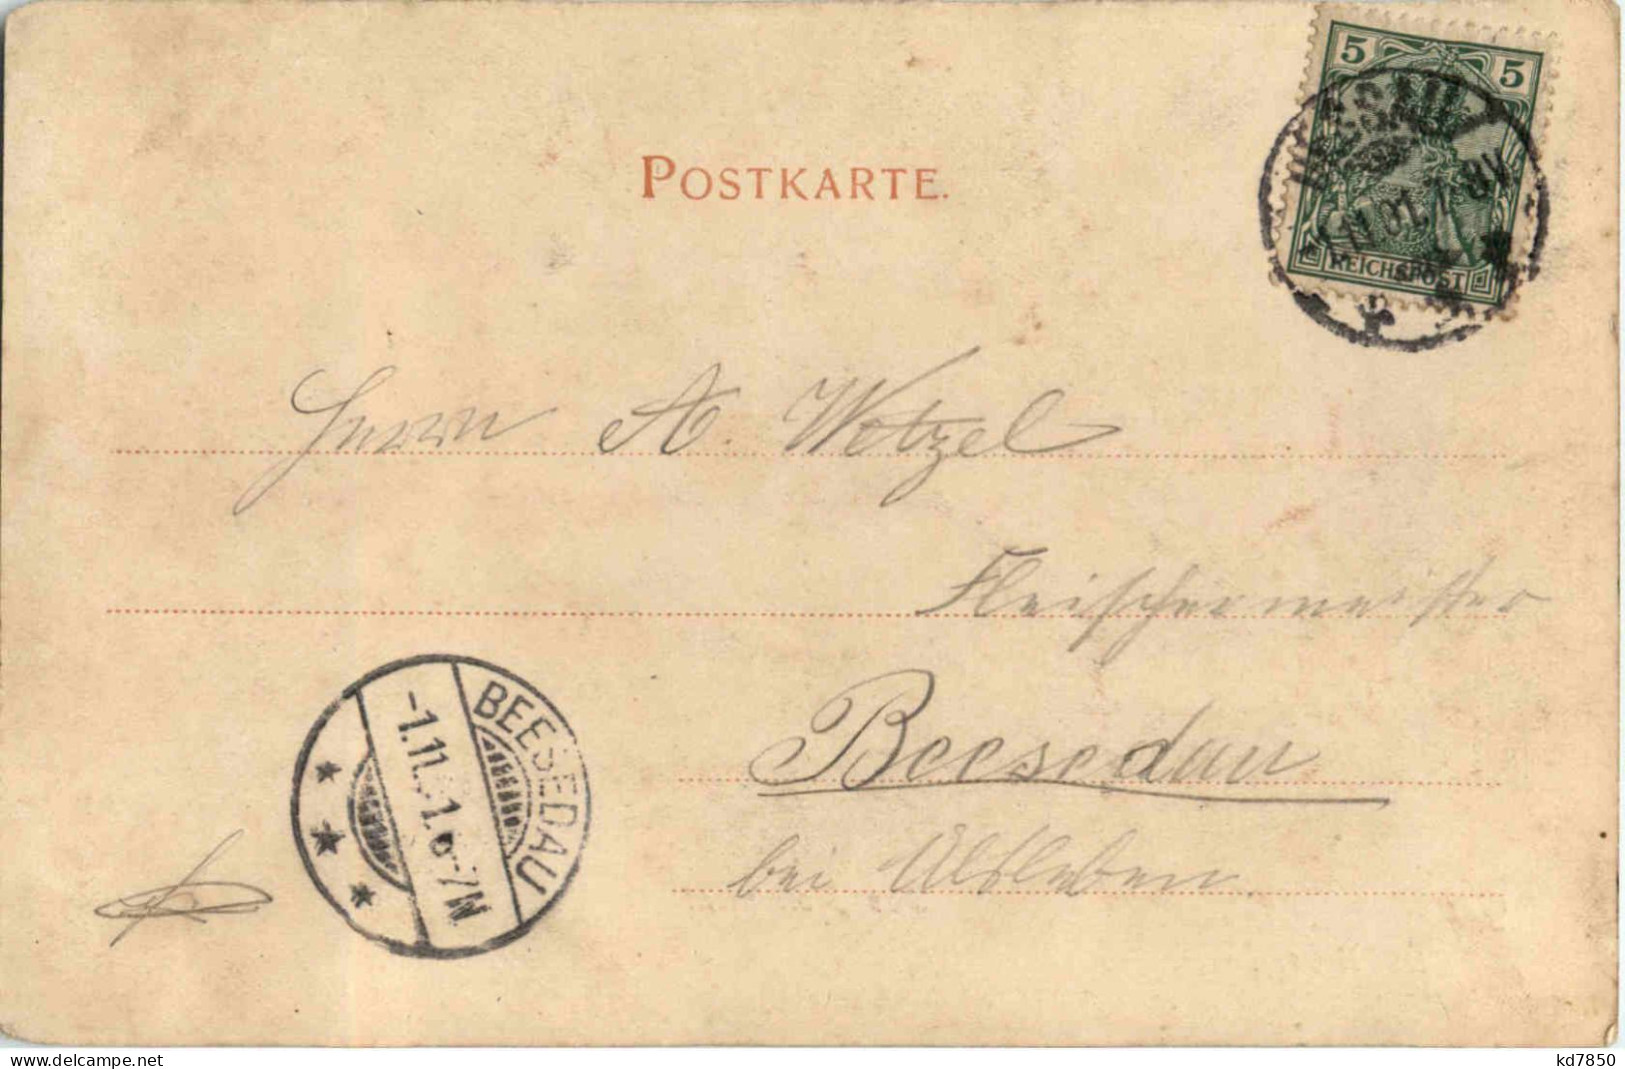 5 5
DESSAU 1
1.11.01. 7-8V.
REICHSPOST
POSTKARTE.
Herrn A. Wetzel
Fleischermeister
Beesedau
bei Alsleben.
BEESEDAU
-1.11. 1. 6-7N
www.delcampe.net
kd7850